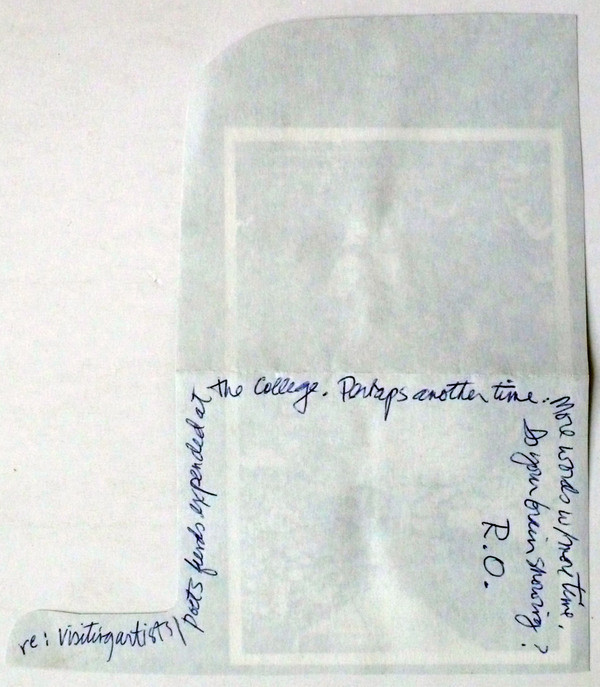 re: visiting artists/
poets funds expended at
the College. Perhaps another time.
More words w/more time.
Is your brain snowing?
R.O.